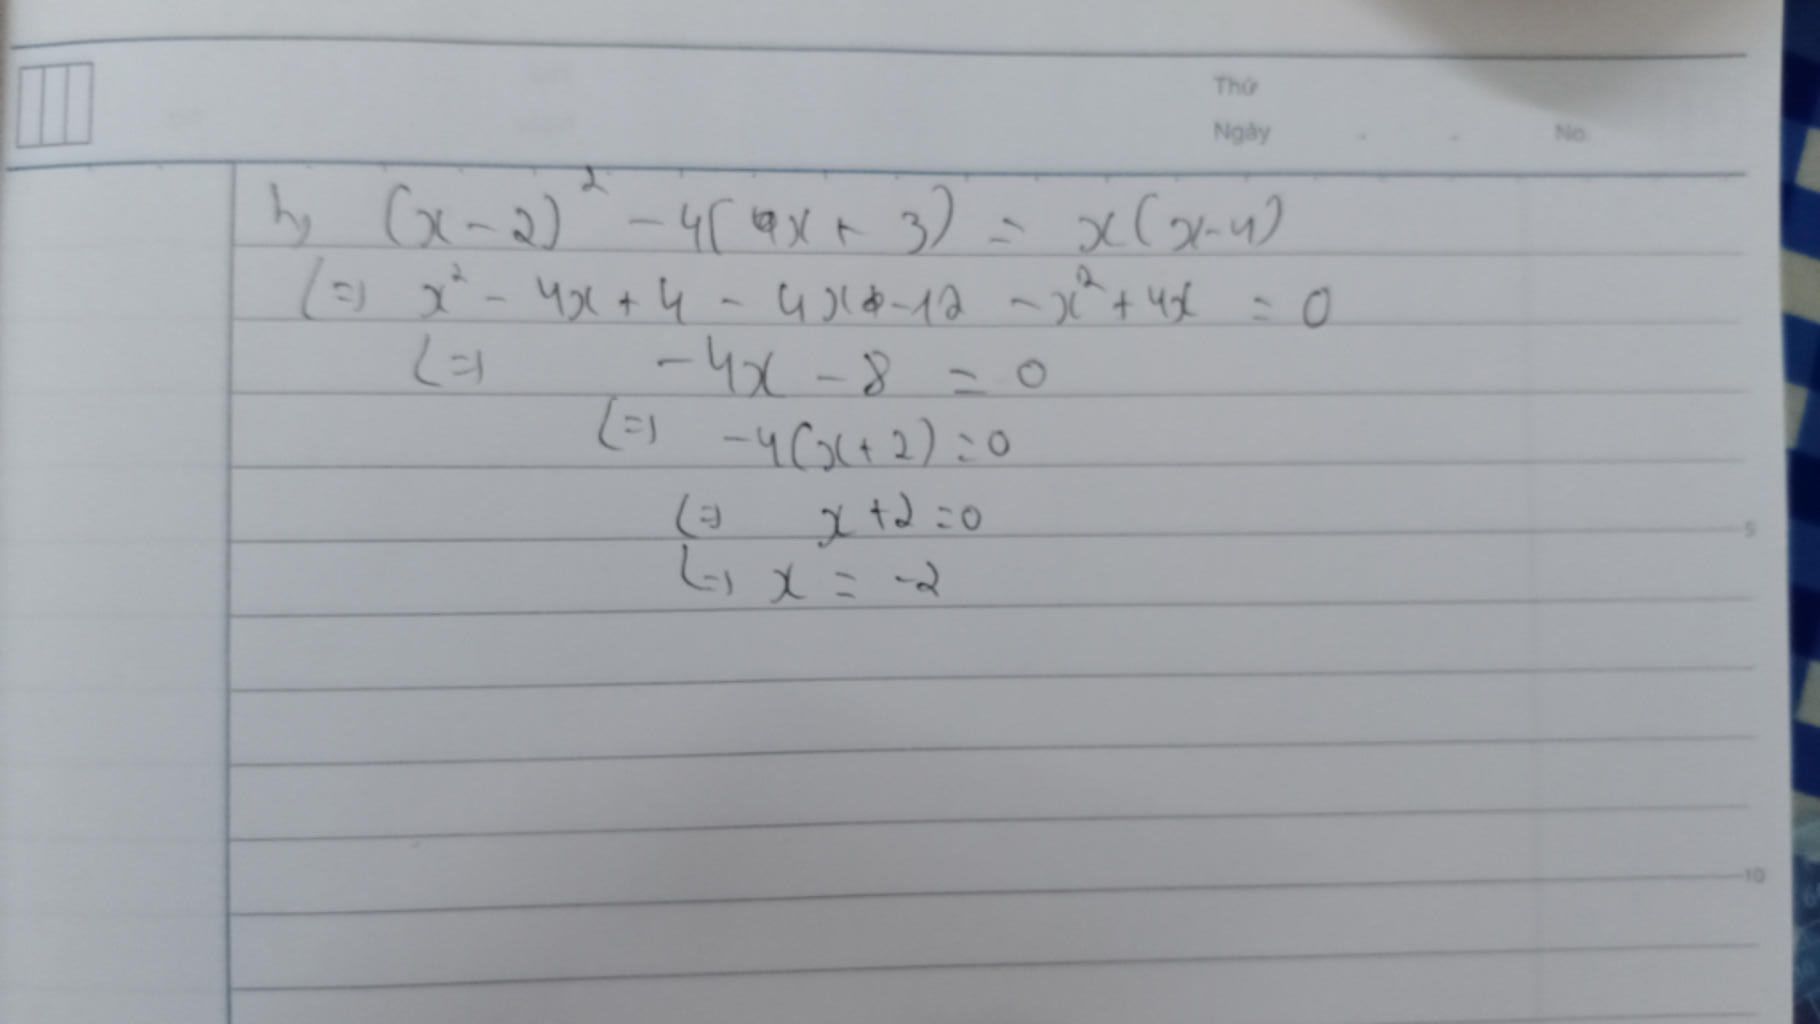 Thứ
Ngày . . No.
h, (x-2)² - 4(x + 3) = x(x-4)
(=) x² - 4x + 4 - 4x - 12 - x² + 4x = 0
(=) -4x - 8 = 0
(=) -4(x+2) = 0
(=) x+2=0
(=) x = -2
5
10